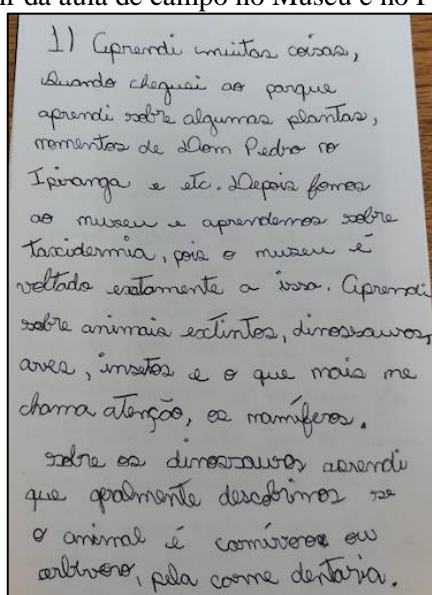 ir da aula de campo no Museu e no P
1) Aprendi muitas coisas,
Quando cheguei ao parque
aprendi sobre algumas plantas,
momentos de Dom Pedro no
Ipiranga e etc. Depois fomos
ao museu e aprendemos sobre
taxidermia, pois o museu é
voltado exatamente a isso. Aprendi
sobre animais extintos, dinossauros,
aves, insetos e o que mais me
chama atenção, os mamíferos.
sobre os dinossauros aprendi
que geralmente descobrimos se
o animal é carnívoro ou
, pela dentaria.